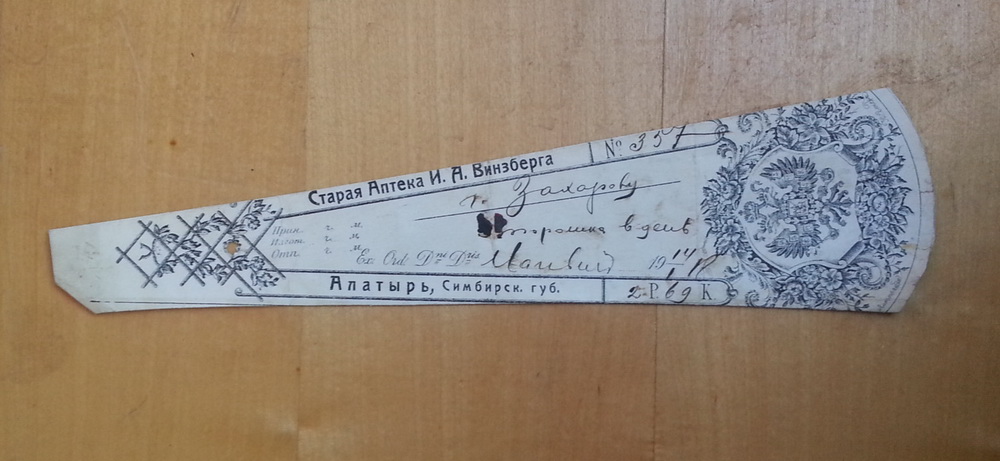 Старая Аптека И. А. Винзберга
№ 357
г. Захарову
Прин. ч. м.
Изгот. ч. м.
Отп. ч. м.
порошка в день
Ex Ord Dni Dris
19 14
Алатырь, Симбирск. губ.
2 Р. 69 К